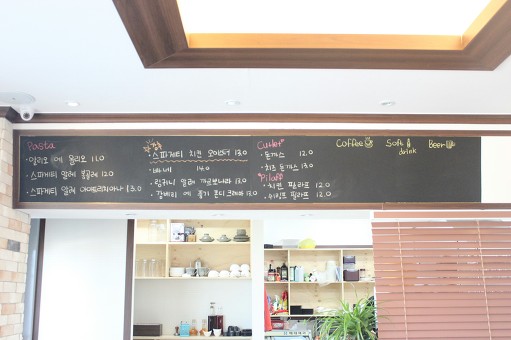 Pasta
· 알리오 에 올리오 11.0
· 스파게티 알레 봉골레 12.0
· 스파게티 알레 아마트리치아나 13.0
· 스파게티 치킨 오이스터 13.0
· 바베 14.0
· 링귀니 알레 까르보나라 13.0
· 감베리 에 풍기 폰디 크레마 13.5
Cutlet
· 돈까스 12.0
· 치즈 돈까스 13.0
Pilaf
· 치킨 필라프 12.0
· 쉬림프 필라프 12.0
Coffee
Soft drink
Beer